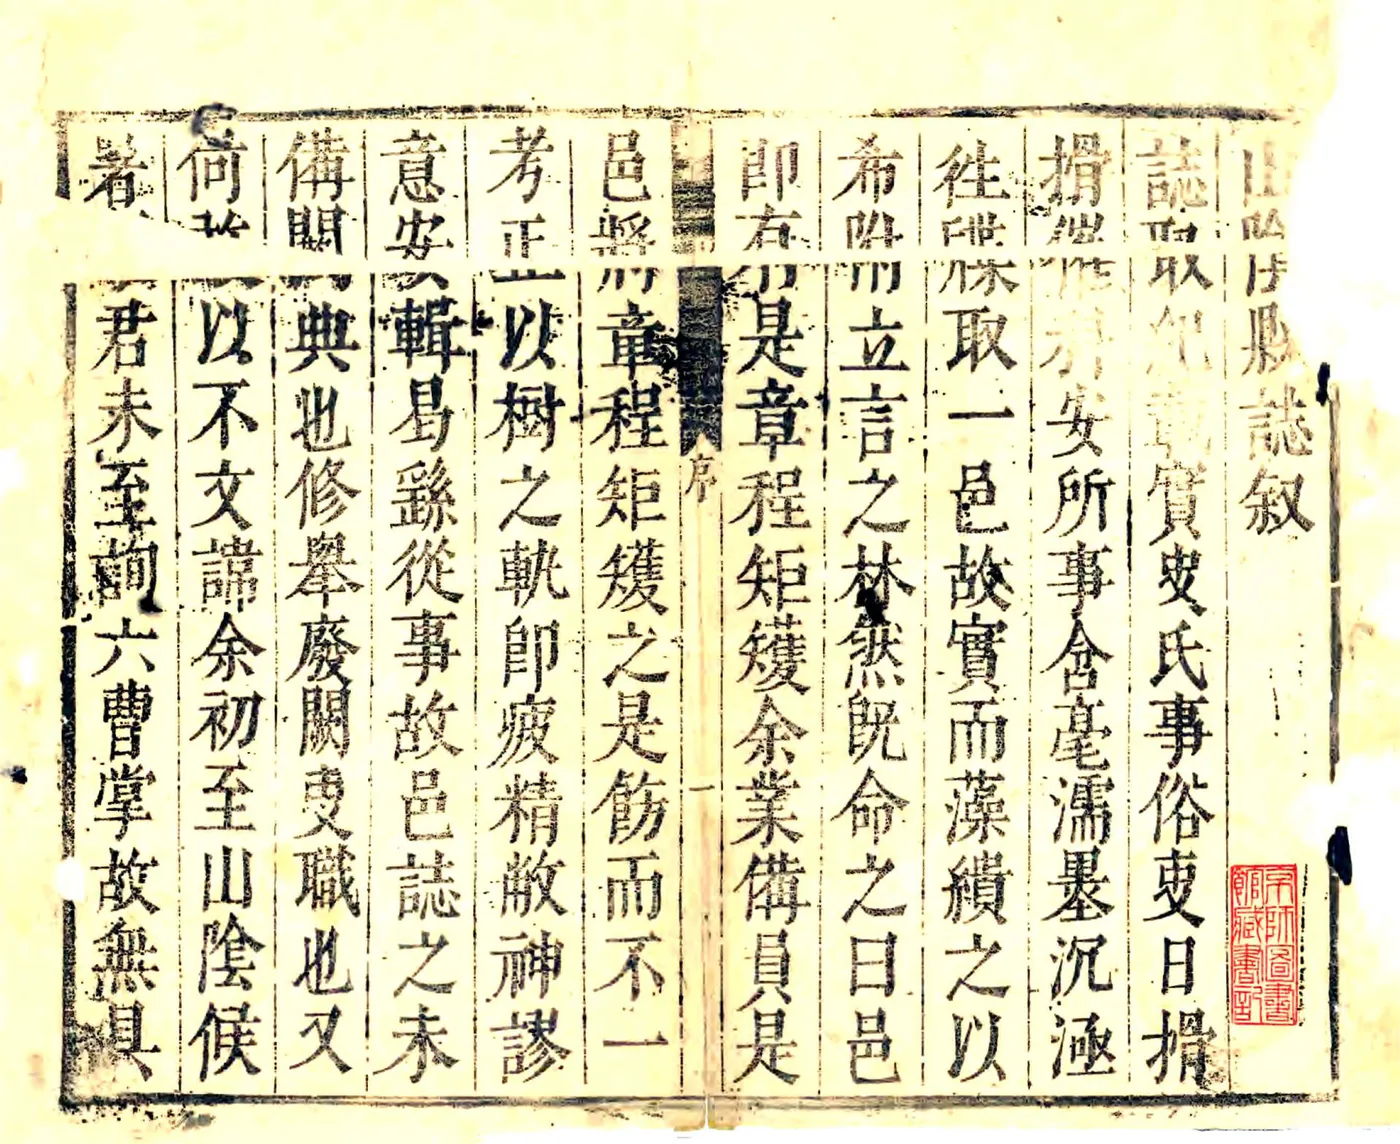 山陰縣誌叙
誌取紀載實史氏事俗吏日搰
搰催科安所事含毫濡墨沉極
徃牒取一邑故實而藻繢之以
希附立言之林然既命之曰邑
即有是章程矩矱余業備員是
序
一
邑將章程矩矱之是飭而不一
考正以樹之軌即疲精敝神謬
意安輯曷繇從事故邑誌之未
備闕典也修舉廢闕吏職也又
何以不文諱余初至山陰候
著君未至詢六曹掌故無具
京師圖書
館藏書記